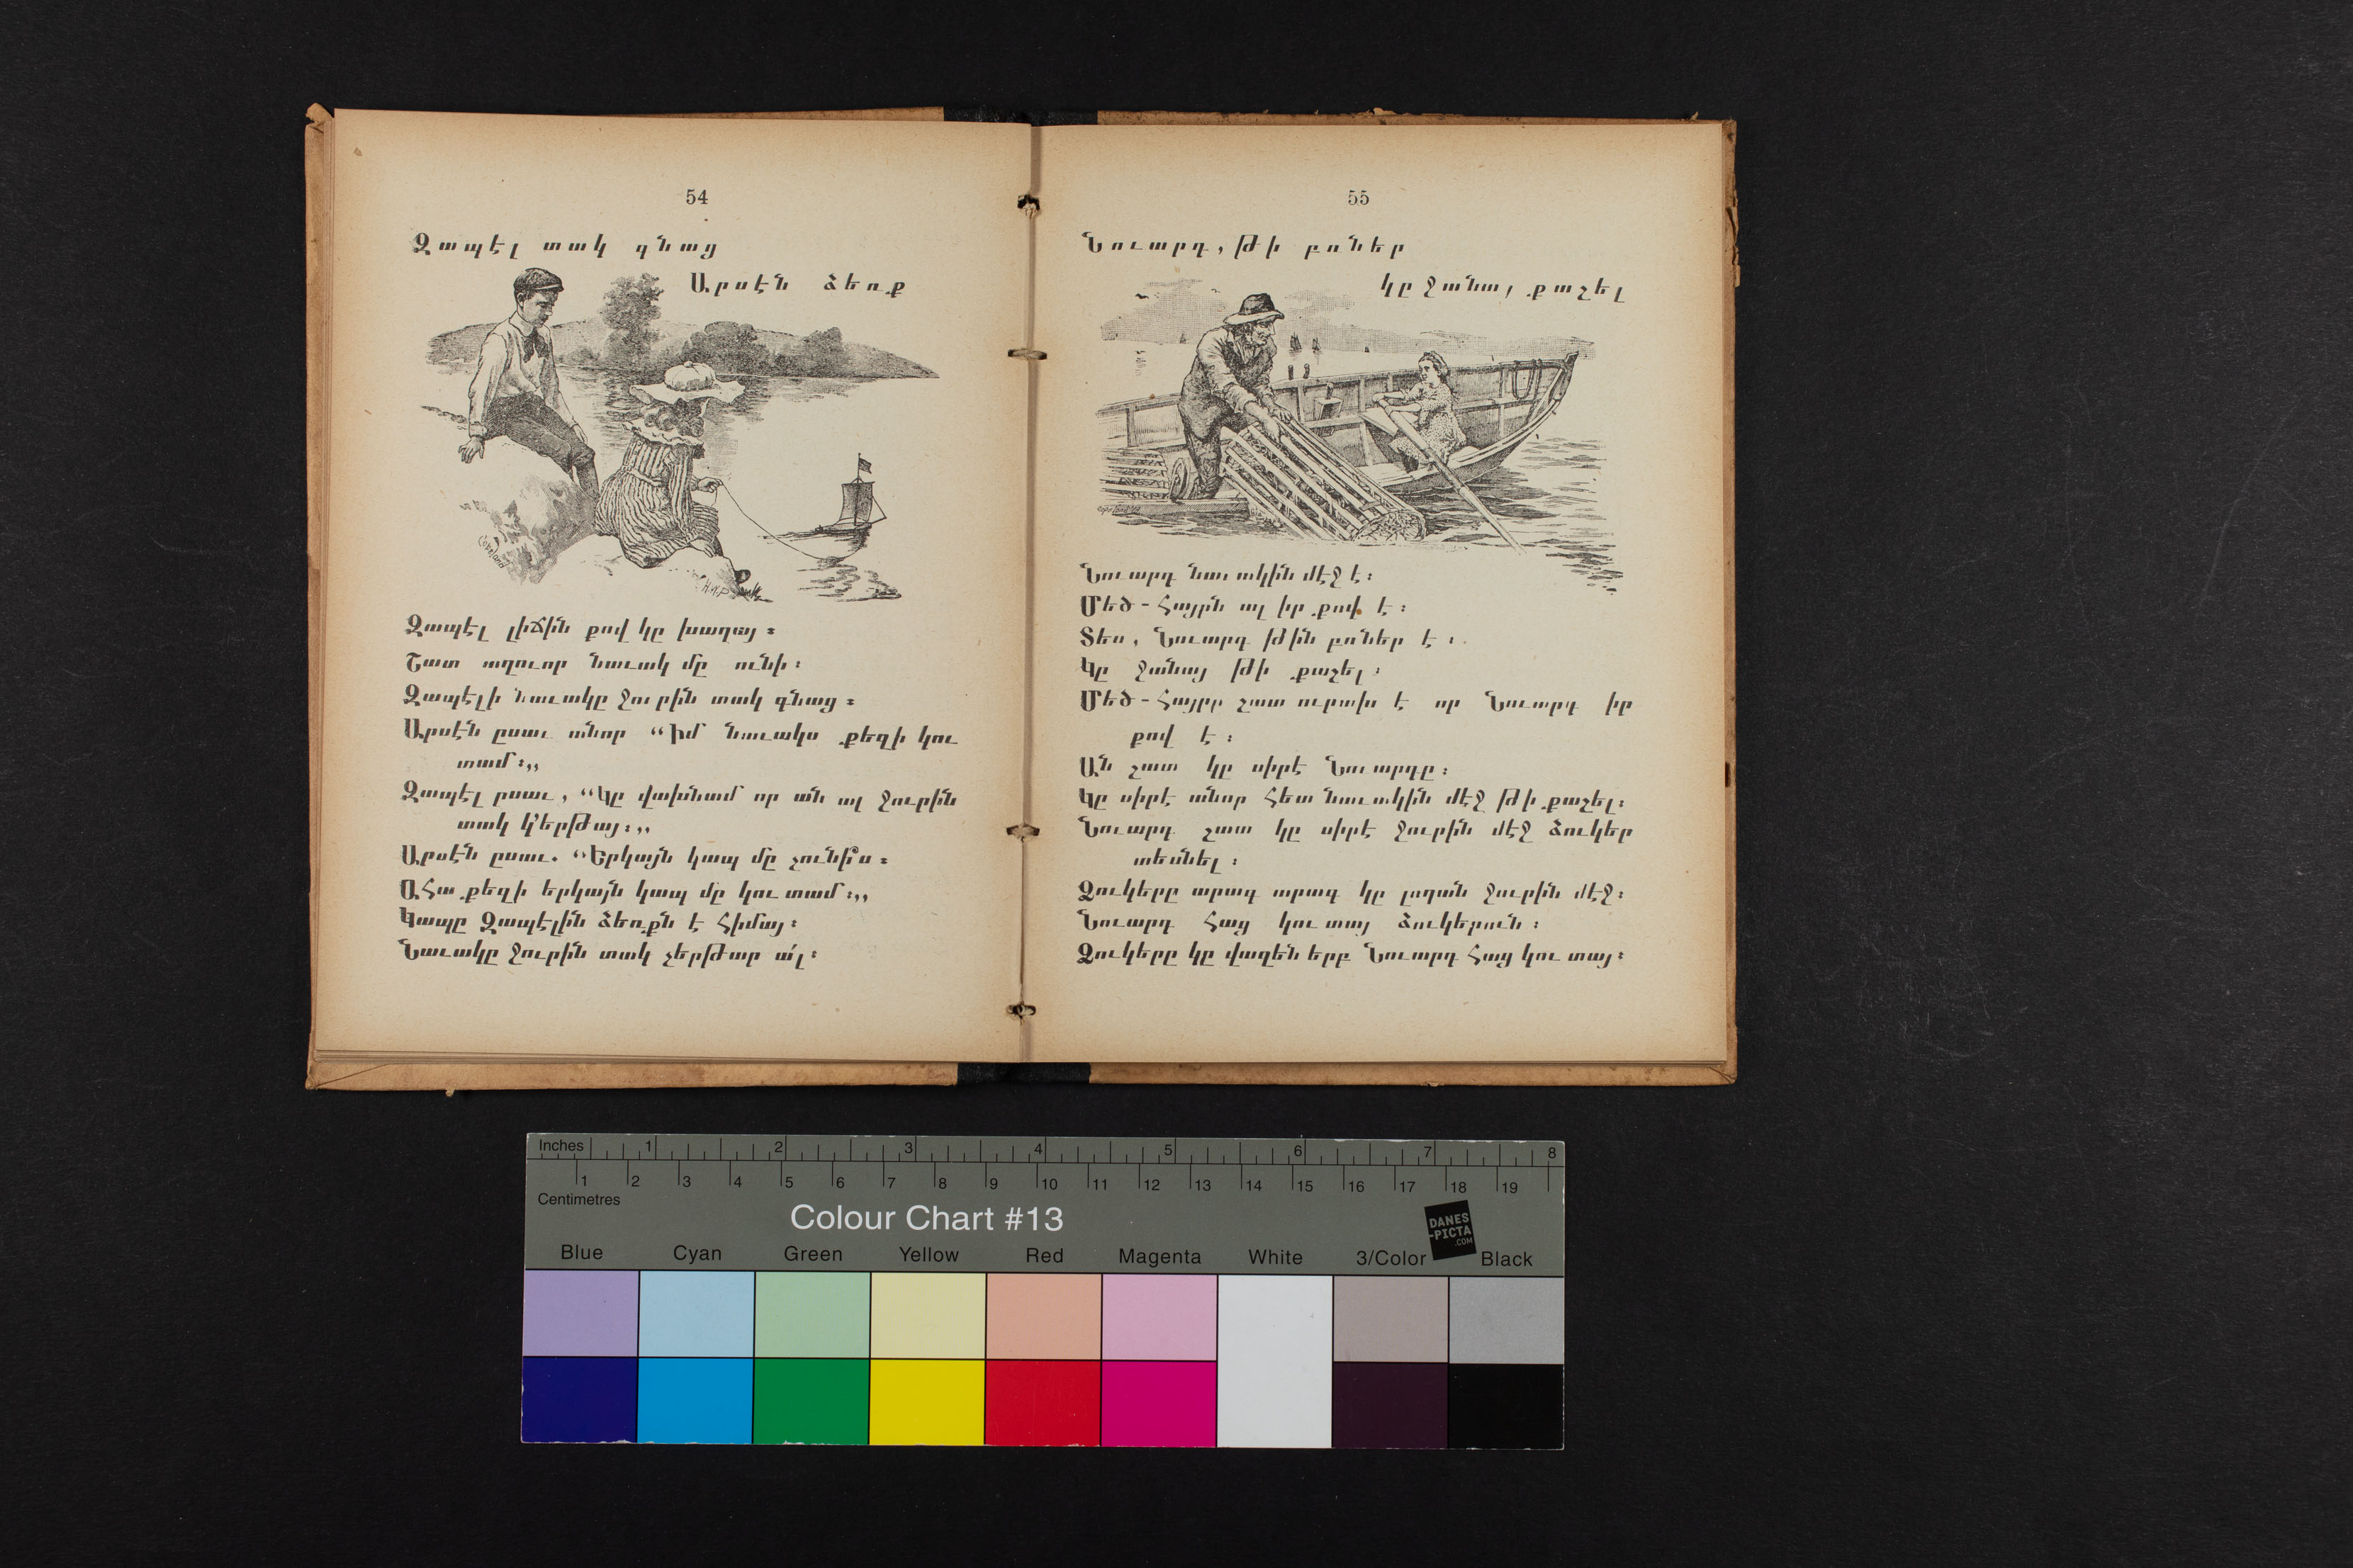 54
Զապէլ տակ գնաց
Արսէն ձեռք
Զապէլ լիճին քով կը խաղայ։
Շատ աղուոր նաւակ մը ունի։
Զապէլի նաւակը ջուրին տակ գնաց։
Արսէն ըսաւ անոր “Իմ նաւակս քեզի կու
տամ։,,
Զապէլ ըսաւ, “Կը վախնամ որ ան ալ ջուրին
տակ կ՚երթայ։,,
Արսէն ըսաւ. “Երկայն կապ մը չունի՞ս։
Ահա քեզի երկայն կապ մը կու տամ։,,
Կապը Զապէլին ձեռքն է հիմայ։
Նաւակը ջուրին տակ չերթար ա՛լ։
55
Նուարդ, թի բռներ
կը ջանայ քաշել
Նուարդ նաւակին մէջ է։
Մեծ-հայրն ալ իր քով է։
Տես, Նուարդ թին բռներ է։
Կը ջանայ թի քաշել։
Մեծ-հայրը շատ ուրախ է որ Նուարդ իր
քով է։
Ան շատ կը սիրէ Նուարդը։
Կը սիրէ անոր հետ նաւակին մէջ թի քաշել։
Նուարդ շատ կը սիրէ ջուրին մէջ ձուկեր
տեսնել։
Ձուկերը արագ արագ կը լողան ջուրին մէջ։
Նուարդ հաց կու տայ ձուկերուն։
Ձուկերը կը վազեն երբ Նուարդ հաց կու տայ։
Copeland
H.M.P.
Inches 1 2 3 4 5 6 7 8
1 2 3 4 5 6 7 8 9 10 11 12 13 14 15 16 17 18 19
Centimetres
Colour Chart #13
DANES
-PICTA
.COM
Blue Cyan Green Yellow Red Magenta White 3/Color Black